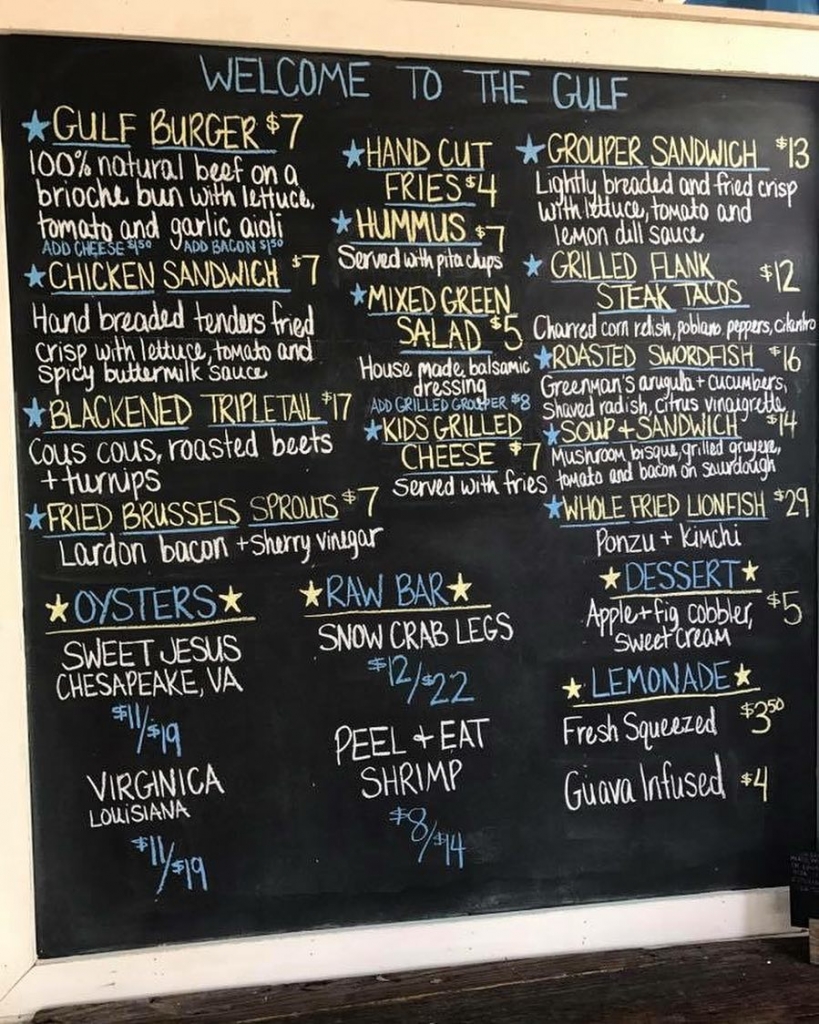 WELCOME TO THE GULF
★GULF BURGER $7
100% natural beef on a
brioche bun with lettuce,
tomato and garlic aioli
ADD CHEESE $1.50 ADD BACON $1.50
★CHICKEN SANDWICH $7
Hand breaded tenders fried
crisp with lettuce, tomato and
spicy buttermilk sauce
★BLACKENED TRIPLETAIL $17
Cous cous, roasted beets
+ turnips
★FRIED BRUSSELS SPROUTS $7
Lardon bacon + Sherry vinegar
★HAND CUT
FRIES $4
★HUMMUS $7
Served with pita chips
★MIXED GREEN
SALAD $5
House made balsamic
dressing
ADD GRILLED GROUPER $8
★KIDS GRILLED
CHEESE $7
Served with fries
★GROUPER SANDWICH $13
Lightly breaded and fried crisp
with lettuce, tomato and
lemon dill sauce
★GRILLED FLANK
STEAK TACOS $12
Charred corn relish, poblano, peppers, cilantro
★ROASTED SWORDFISH $16
Greenman's arugula + cucumbers,
shaved radish, citrus vinaigrette
★SOUP + SANDWICH $14
Mushroom bisque, grilled gruyere,
tomato and bacon on sourdough
★WHOLE FRIED LIONFISH $29
Ponzu + Kimchi
★OYSTERS★
SWEET JESUS
CHESAPEAKE, VA
$11/$19
VIRGINICA
LOUISIANA
$11/$19
★RAW BAR★
SNOW CRAB LEGS
$12/$22
PEEL + EAT
SHRIMP
$8/$14
★DESSERT★
Apple + fig cobbler, $5
sweet cream
★LEMONADE★
Fresh Squeezed $3.50
Guava Infused $4